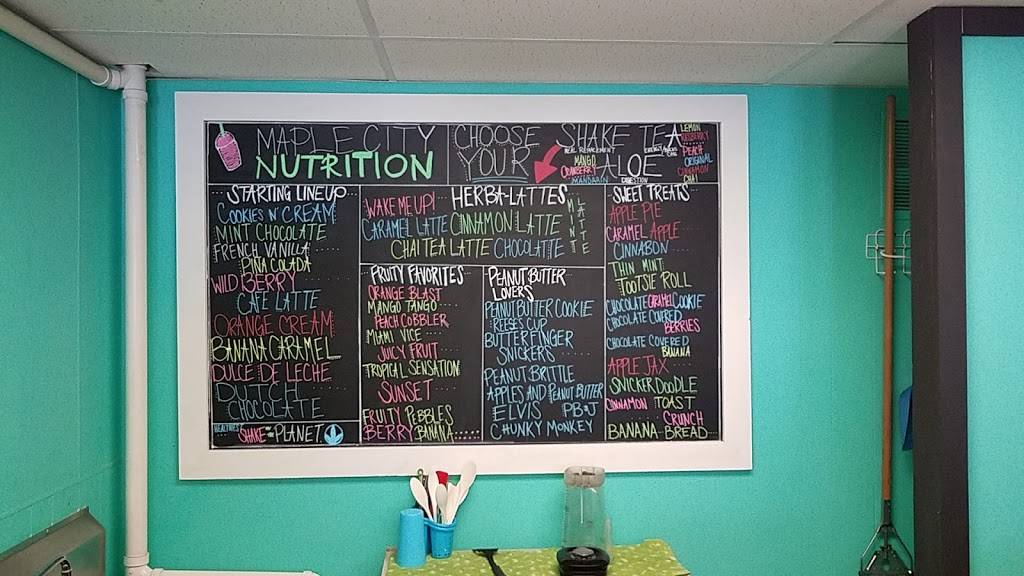 MAPLE CITY
NUTRITION
CHOOSE SHAKE TEA
YOUR ALOE
MEAL REPLACEMENT
MANGO
CRANBERRY
MANDARIN
LEMON
RASPBERRY
PEACH
ORIGINAL
CINNAMON
CHAI
STARTING LINEUP
COOKIES N' CREAM
MINT CHOCOLATE
FRENCH VANILLA
PINA COLADA
WILD BERRY
CAFE LATTE
ORANGE CREAM
BANANA CARAMEL
DULCE DE LECHE
DUTCH
CHOCOLATE
HEALTHIEST
SHAKE ON THE PLANET
HERBA-LATTES
WAKE ME UP!
CARAMEL LATTE CINNAMON LATTE
CHAI TEA LATTE CHOCOLATTE
MINT LATTE
FRUITY FAVORITES
ORANGE BLAST
MANGO TANGO
PEACH COBBLER
MIAMI VICE
JUICY FRUIT
TROPICAL SENSATION
SUNSET
FRUITY PEBBLES
BERRY BANANA
PEANUT BUTTER
LOVERS
PEANUT BUTTER COOKIE
REESES CUP
BUTTERFINGER
SNICKERS
PEANUT BRITTLE
APPLES AND PEANUT BUTTER
ELVIS PB&J
CHUNKY MONKEY
SWEET TREATS
APPLE PIE
CARAMEL APPLE
CINNABON
THIN MINT
TOOTSIE ROLL
CHOCOLATE CARAMEL COOKIE
CHOCOLATE COVERED
BERRIES
CHOCOLATE COVERED
BANANA
APPLE JAX
SNICKERDOODLE
CINNAMON TOAST
CRUNCH
BANANA BREAD